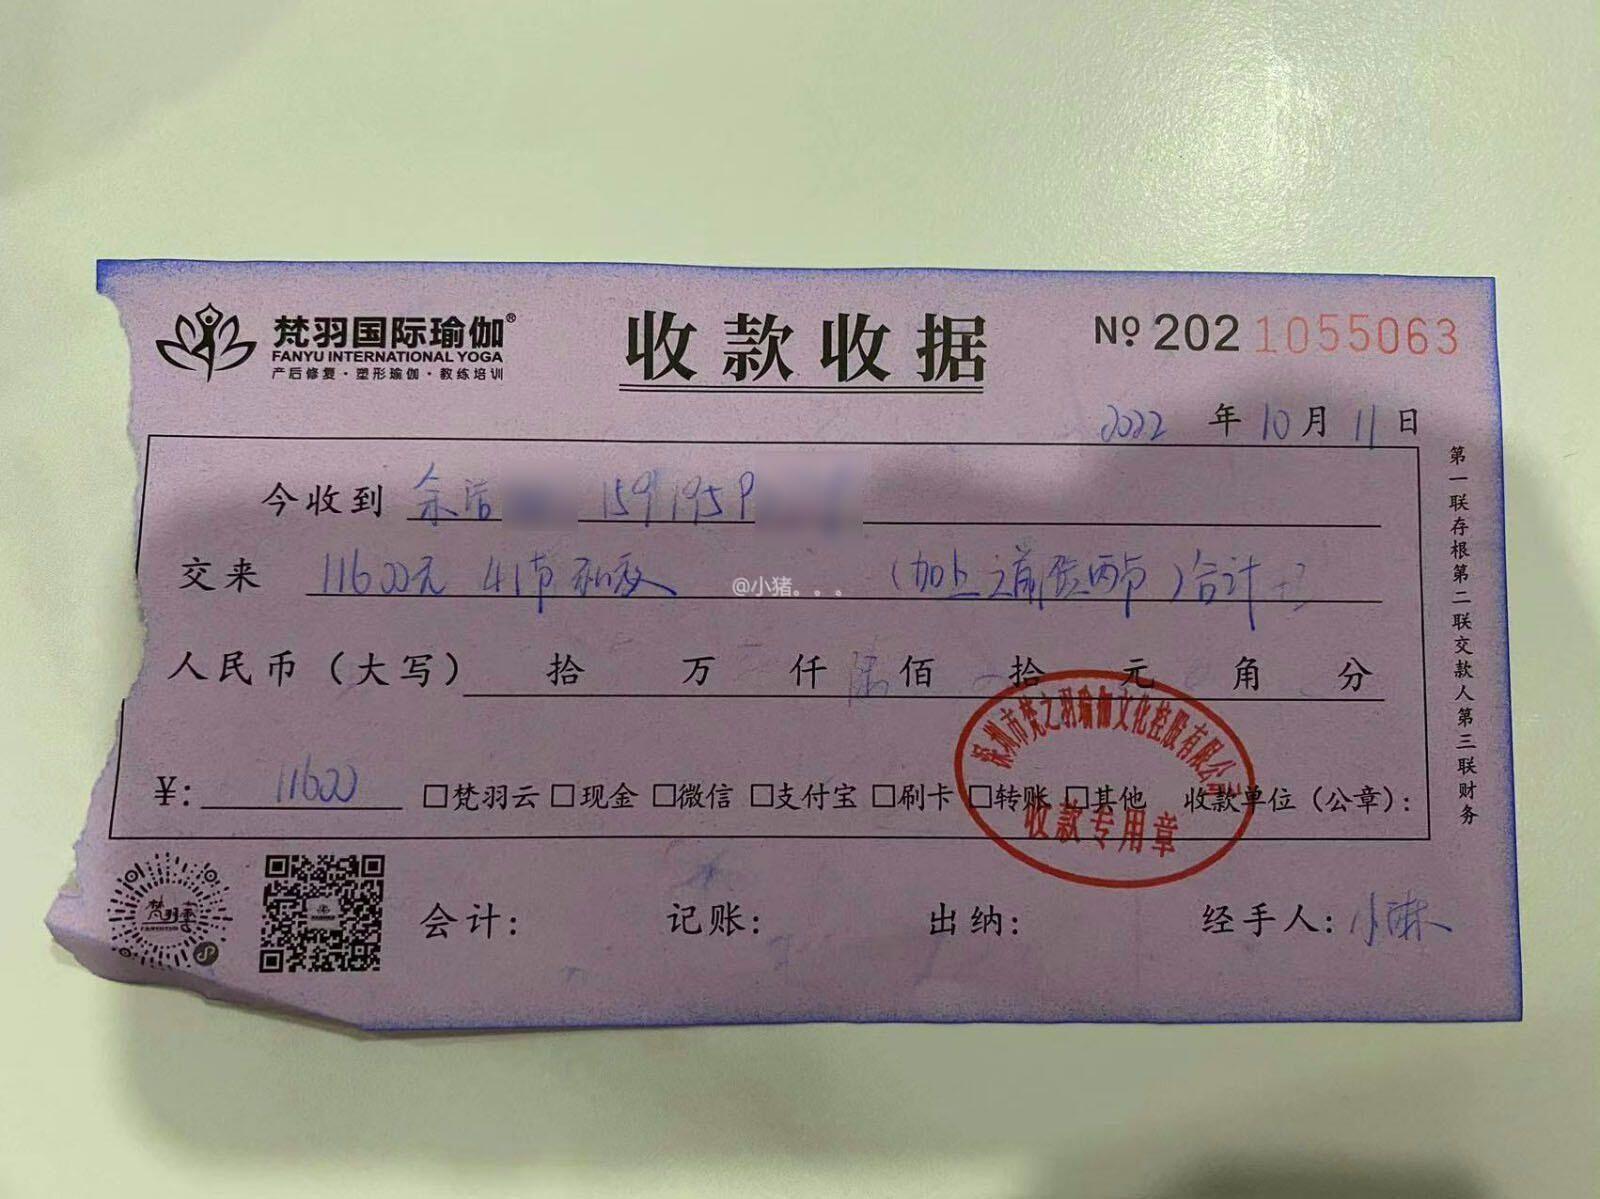 梵羽国际瑜伽®
FANYU INTERNATIONAL YOGA
产后修复·塑形瑜伽·教练培训
收款收据
Nº 2021055063
2022 年 10 月 11 日
今收到 余洁 1591959
交来 11600元 41节私教 (加上之前货两节)合计
@小猪。。。
人民币(大写) 拾 万 仟 陆佰 拾 元 角 分
¥: 11600 □梵羽云□现金□微信□支付宝□刷卡□转账□其他 收款单位(公章):
深圳市梵之羽瑜伽文化控股有限公司
收款专用章
第一联存根第二联交款人第三联财务
梵羽云
会计: 记账: 出纳: 经手人: 小琳